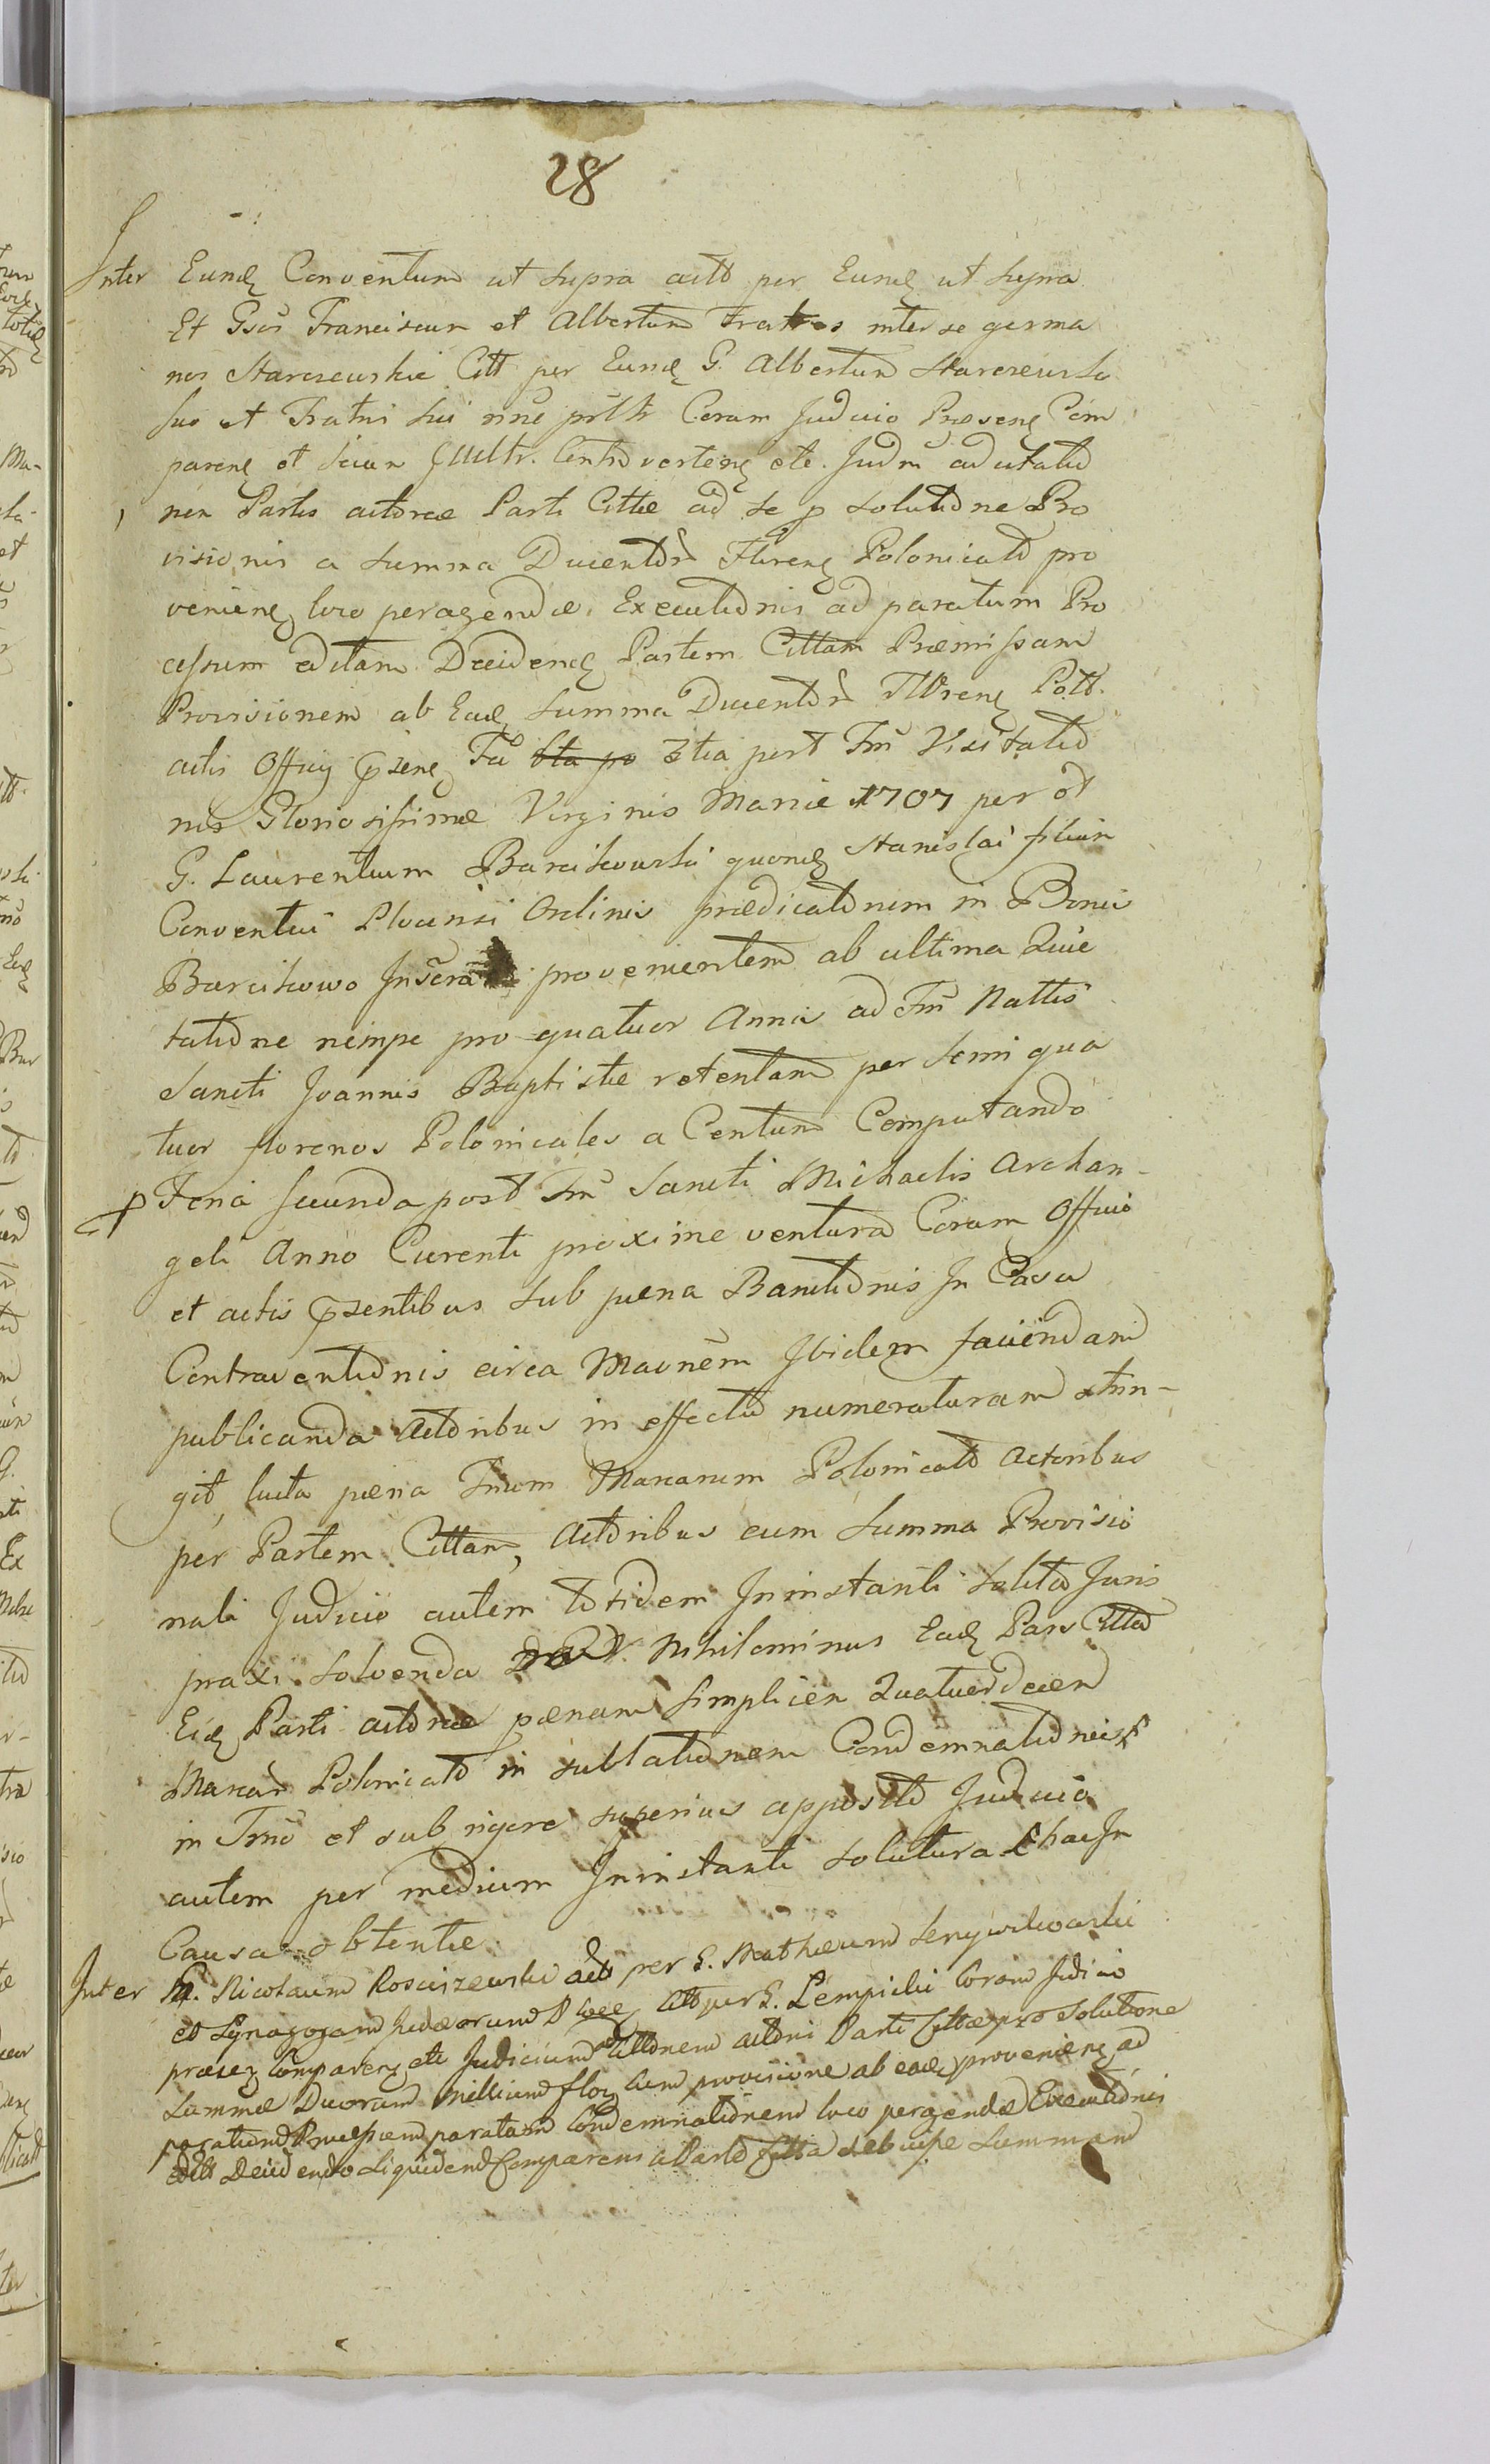 28
Inter Eund Conventum ut supra actt per Eund ut supra
Et Gsos Franciscum et Albertum Fratres inter se germa
nos Starczewskie Citt per Eund G. Albertum Starczewski
suo et Fratris sui nne Coram Judicio Præsend Com
parend et Controvertend etc. Judm ad citatio
nem Partis actoreæ Parti Cittæ ad se p solutione Pro
visionis a Summa Ducentor Florend Polonicalo pro
veniend loco peragendæ Executionis ad paratum Pro
cessum editam Decidend Partem Cittam Præmissam
Provisionem ab Ead Summa Ducentor Florend Poll.
actis Officij psend Fa sta po 3tia post Fm Visitatio
nis Gloriosissimæ Virginis Mariæ 1707 per olt
G. Laurentium Barcikowski quond Stanislai filium
Conventui Plocensi Ordinis prædicatorum in Bonis
Barcikowo Inscra provenientem ab ultima Quie
tatione nempe pro quatuor Annis ad Fm Nattis
Sancti Joannis Baptistæ retentam per Semi qua
tuor florenos Polonicales a Centum Computando
p Feria secunda post Fm Sancti Michaelis Archan-
geli Anno Curenti proxime ventura Coram Officio
et actis psentibus sub pæna Banitionis In Casu
Contraventionis circa Maonem Ibidem faciendam
publicanda Actoribus in effectu numeraturam
pæna Trium Marcarum Polonicalo Actoribus
per Partem Cittam, Actoribus cum Summa Provisio
nali Judicio autem totidem Ininstanti solito Juris
praxi solvenda Nihilominus Ead Pars Citta
Eid Parti actoreæ pænam simplicem Quatuordecem
Marcar Polonicalo in sublationem Condemnationis
in Tmo et sub rigore superius apposito Judicio
autem per medium Ininstanti solutura hac In
Causa obtentæ
Inter G. Nicolaum Rosciszewski act per G. Mathæum
et Synagogam Judæorum Citt per G. Lempicki Coram Judicio
præsen Comparend etc Judicium ad Cittonem actori Parti Cittæ pro Solutione
Summæ Duorum Millium flor cum provisione ab eade provenienz ad
paratum Processum paratam Condemnationem loco peragendæ Executionis
editt Decidendo liquidem Comparens a Parte Citta summam